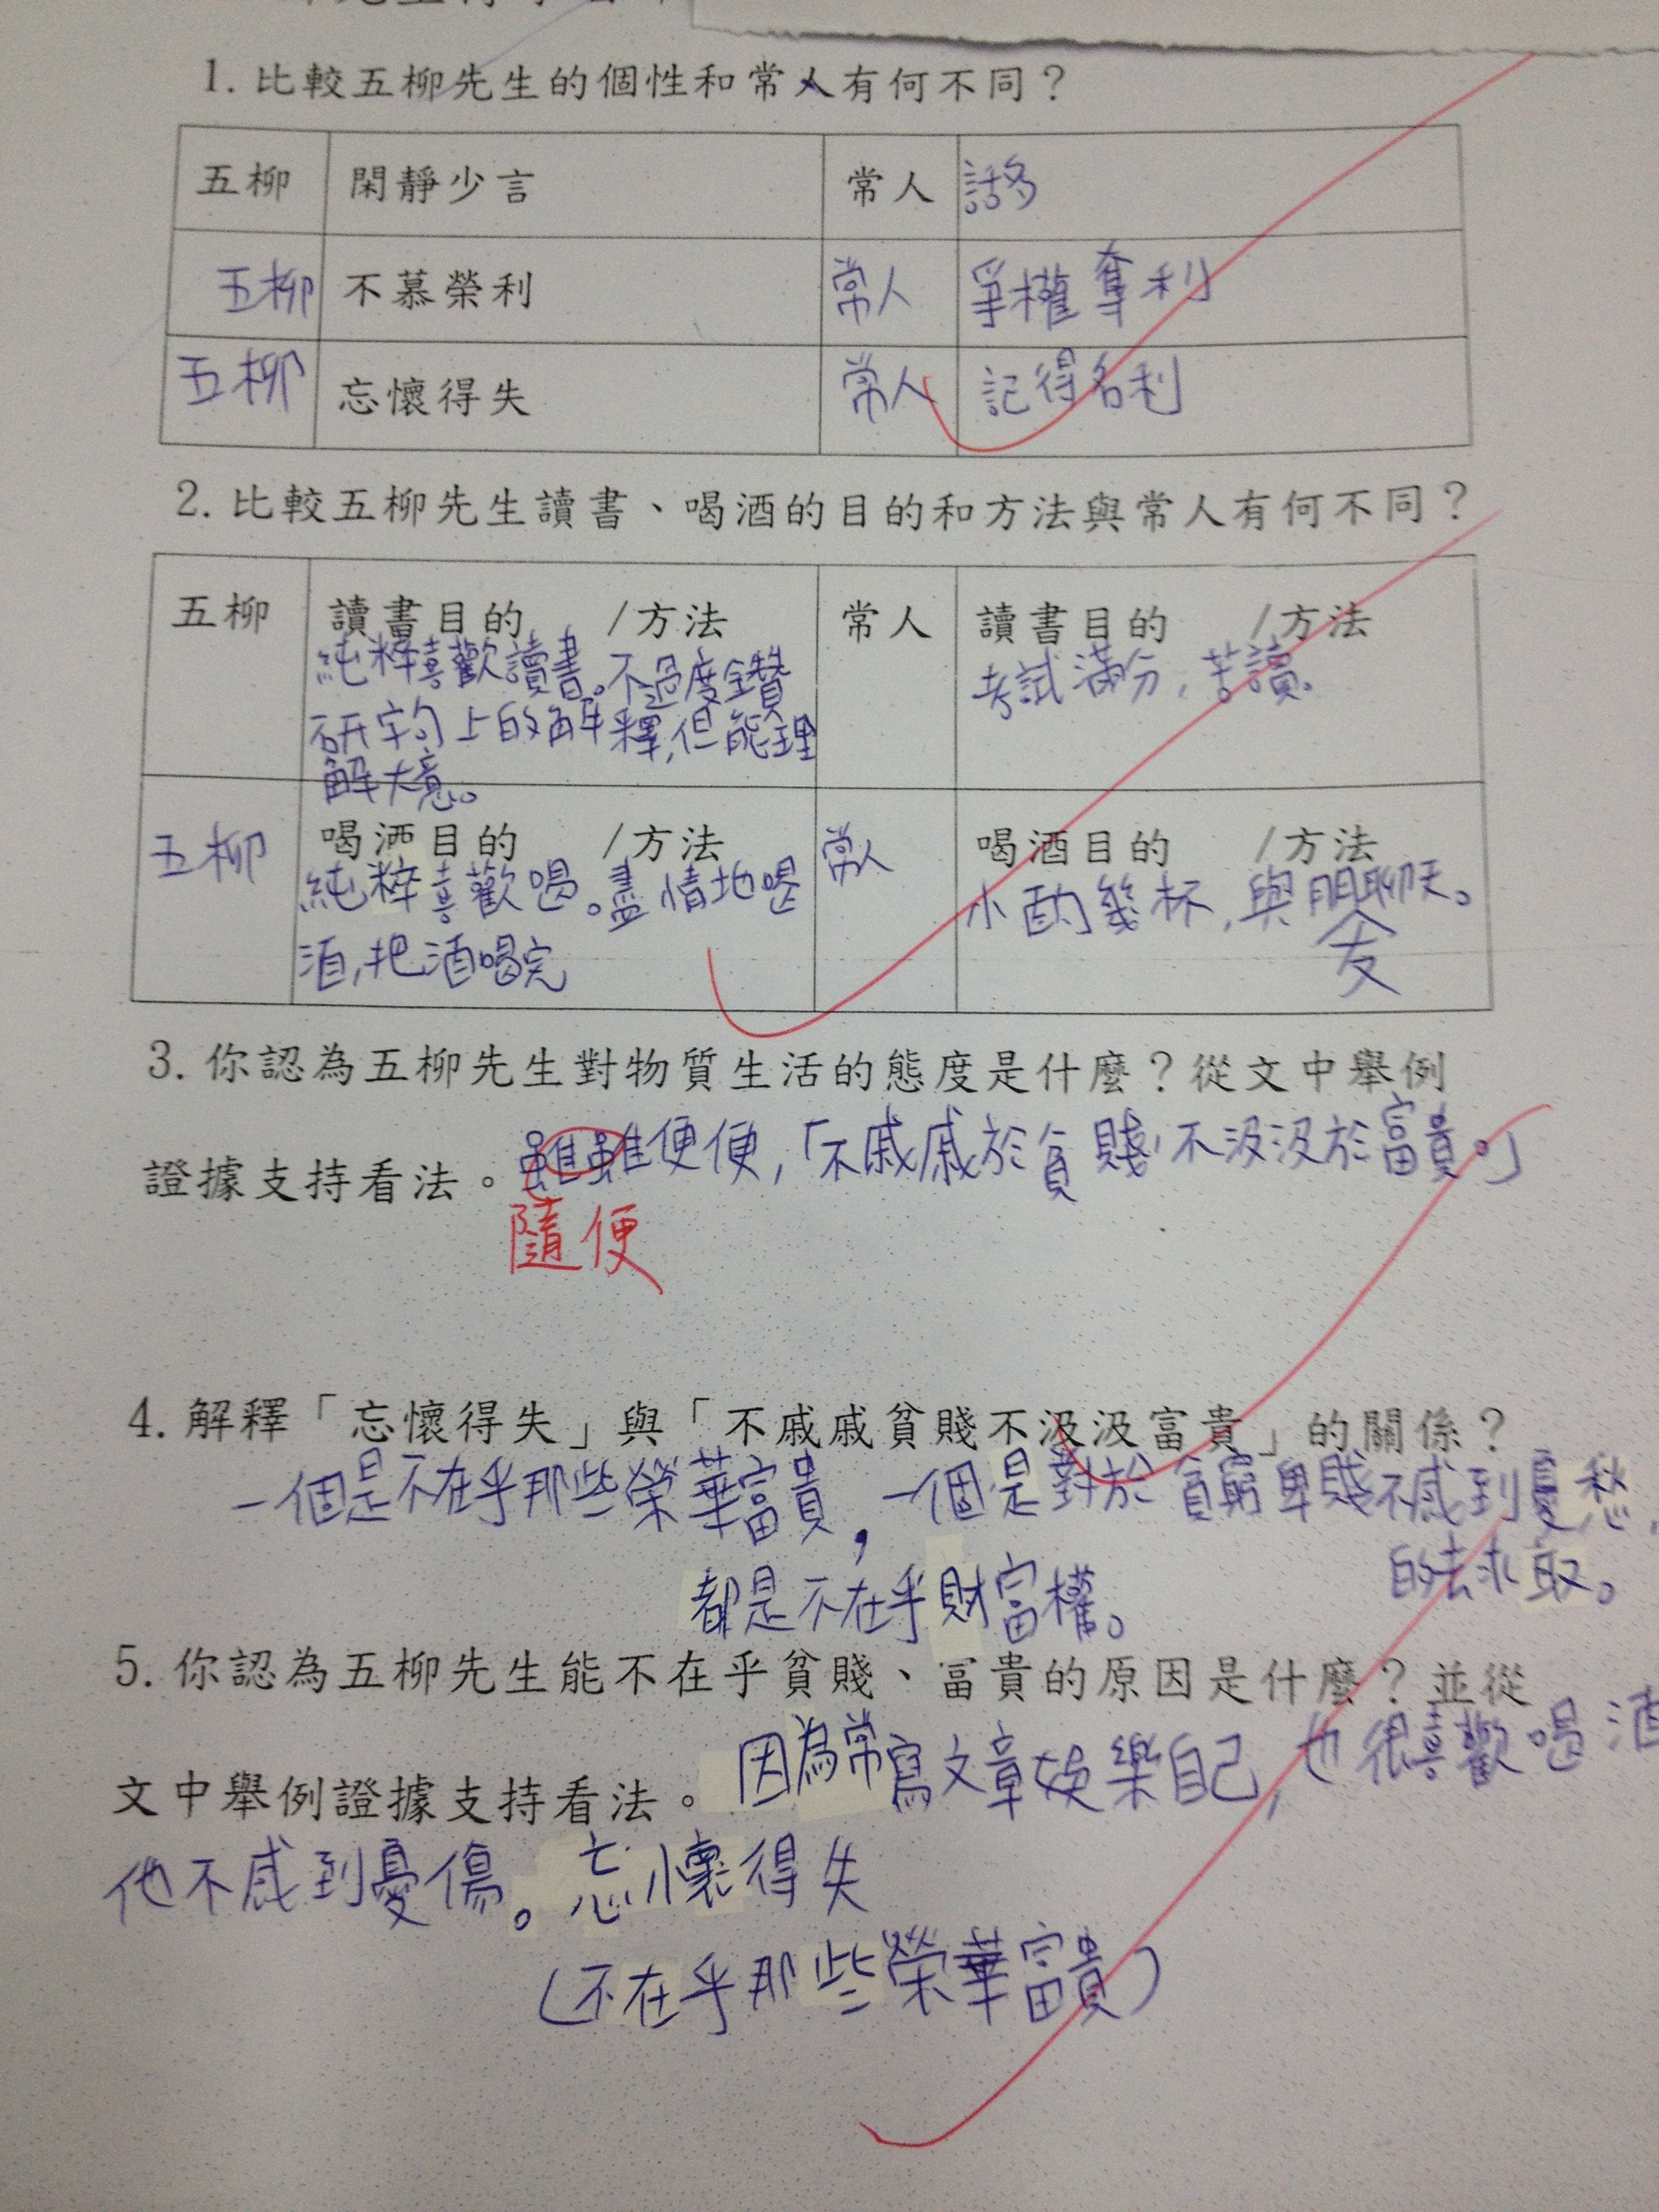 1. 比較五柳先生的個性和常人有何不同？
五柳 閑靜少言 常人 話多
五柳 不慕榮利 常人 爭權奪利
五柳 忘懷得失 常人 記得名利
2. 比較五柳先生讀書、喝酒的目的和方法與常人有何不同？
五柳 讀書目的 /方法 常人 讀書目的 /方法
純粹喜歡讀書。不過度鑽 考試滿分，苦讀。
研字句上的解釋，但能理
解大意。
五柳 喝酒目的 /方法 常人 喝酒目的 /方法
純粹喜歡喝。盡情地喝 小酌幾杯，與朋聊天。
酒，把酒喝完 友
3. 你認為五柳先生對物質生活的態度是什麼？從文中舉例
證據支持看法。雖雖便便，「不戚戚於貧賤，不汲汲於富貴。」
隨便
4. 解釋「忘懷得失」與「不戚戚貧賤不汲汲富貴」的關係？
一個是不在乎那些榮華富貴，一個是對於貧窮卑賤不感到憂愁，
都是不在乎財富權。 的去求取。
5. 你認為五柳先生能不在乎貧賤、富貴的原因是什麼？並從
文中舉例證據支持看法。因為常寫文章娛樂自己，也很喜歡喝酒
他不感到憂傷。忘懷得失
（不在乎那些榮華富貴）